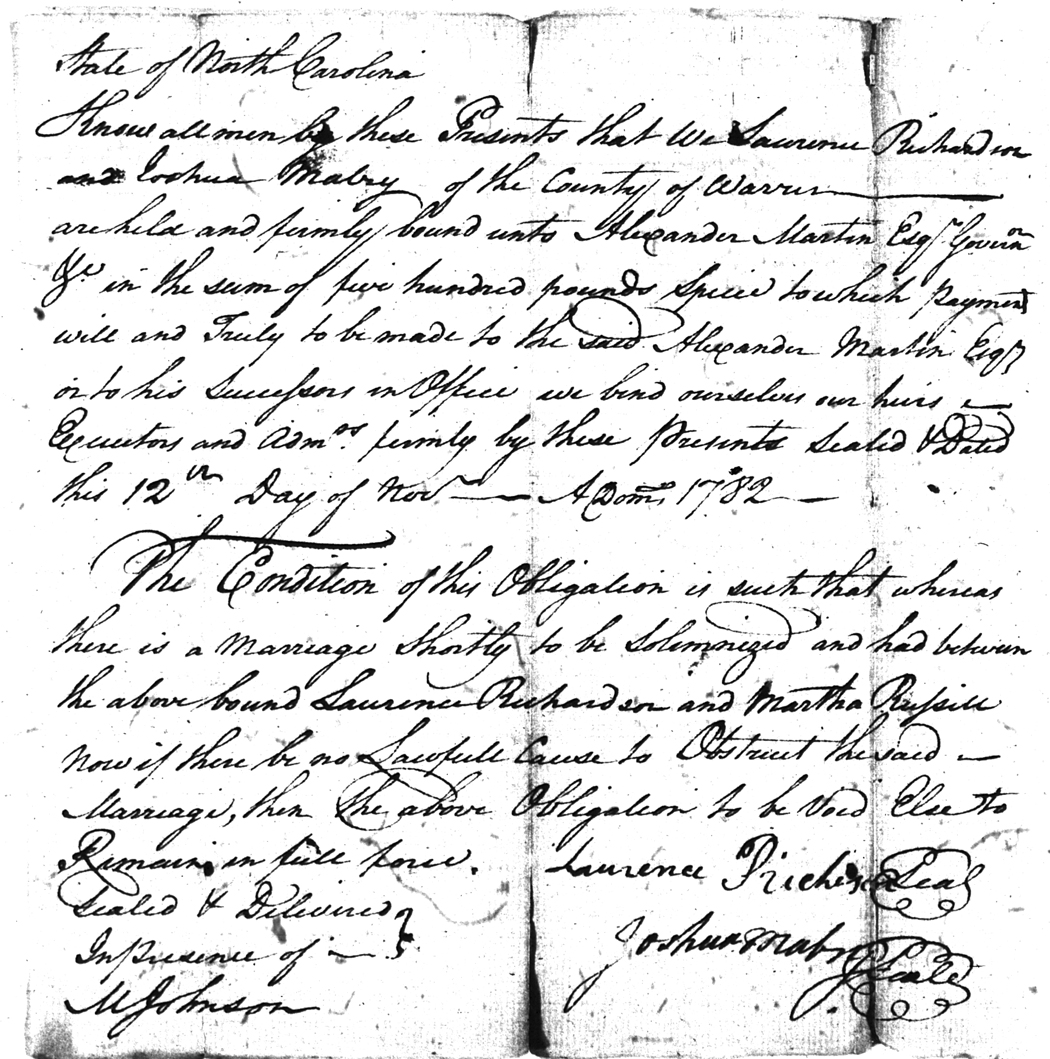 State of North Carolina
Know all men by these Presents that We Laurence Richardson
and Joshua Mabry of the County of Warren
are held and firmly bound unto Alexander Martin Esqr Governor
&c in the sum of five hundred pounds Specie to which payment
well and Truly to be made to the said Alexander Martin Esqr
or to his Successors in Office we bind ourselves our heirs
Executors and Admors firmly by these Presents Sealed & Dated
this 12th Day of Novr A Dom 1782
The Condition of this Obligation is such that whereas
there is a Marriage Shortly to be Solemnized and had between
the above bound Laurence Richardson and Martha Russell
Now if there be no Lawfull Cause to Obstruct the said
Marriage, then the above Obligation to be Void Else to
Remain in full force. Laurence Seal
Sealed & Delivered
In presence of Joshua Mabry Seale
M Johnson